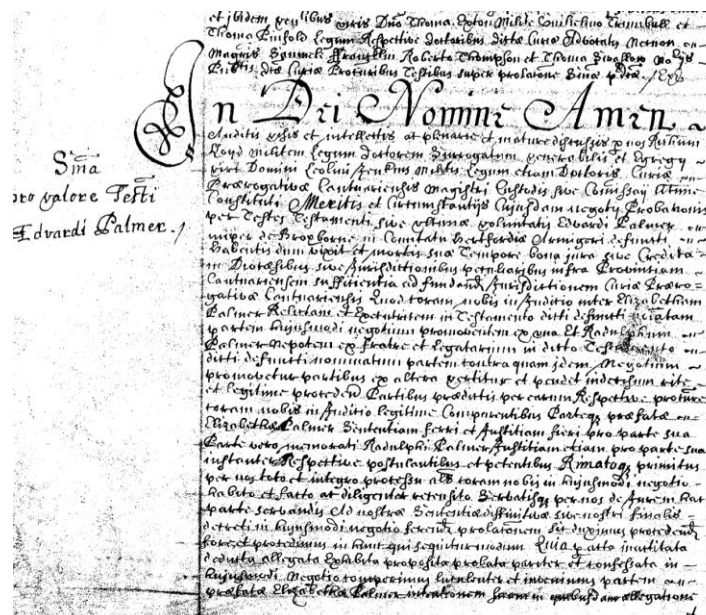 et ibidem presentibus viris Dno Thoma Exton Milite Gulielmo Trumbull et
Thoma Pinfold Legum Respective doctoribus dictæ Curiæ Advocatis Necnon
Magris Samuele Franklin Roberto Thompson et Thoma Swallow No:rijs
Pubcis dtæ Curiæ Proc̃ribus Testibus super prolatione
Sñia
pro valore Testi
Edvardi Palmer
In Dei Nomine Amen
Auditis visis et intellectis ac plenarie et mature discussis p nos Richum
Lloyd Militem Legum doctorem Surrogatum venerabilis et Egregij
viri Domini Leolini Jenkins Militis Legum etiam Doctoris Curiæ
Prærogativæ Cantuariensis Magistri Custodis sive Comissarij ltime
Constituti Meritis et Circumstantijs Cujusdam negotij Probationis
per Testes Testamenti sive ultimæ voluntatis Edvardi Palmer
nuper de Broxborne in Comitatu Hertfordiæ Armigeri defuncti
habentis dum vixit et mortis suæ Tempore bona jura sive Credita
in Diocæsibus sive Jurisdictionibus peculiaribus infra Provinciam
Cantuariensem sufficientia ad fundand Jurisdictionem Curiæ Præro=
gativæ Cantuariensis Quod coram nobis in Judicio inter Elizabetham
Palmer Relictam et Executricem in Testamento dicti defuncti nõiatam
partem hujusmodi negotium promoventem ex una Et Radulphum
Palmer Nepotem ex fratre et legatarium in dicto Testamento
dicti defuncti nominatum partem contra quam idem Negotium
promovetur partibus ex altera vertitur et pendet indecisum rite
et legitime proceden Partibus prædictis per earum Respective procures
coram nobis in Judicio legitime Comparentibus Parteq præfatæ
Elizabethæ Palmer Sententiam ferri et Justitiam fieri pro parte sua
Parte vero memorati Radulphi Palmer Justitiam etiam pro parte sua
instanter Respective postulantibus et petentibus Rimatoq primitus
per nos toto et integro processu als coram nobis in hujusmodi negotio
habito et facto ac diligenter recensito Servatisq per nos de Jure in hac
parte servandis Ad nostræ Sententiæ diffinitivæ sive nostri finalis
decreti in hujusmodi negotio ferend prolationem Sic duximus procedend
fore et procedimus in hunc qui sequitur modum Quia p acta inactitata
deducta allegata Exhibita proposita prolata pariter et confessata in
hujusmodi Negotio comperimus luculenter et invenimus partem
præfatæ Elizabethæ Palmer intentionem suam in quibusdam allegationi